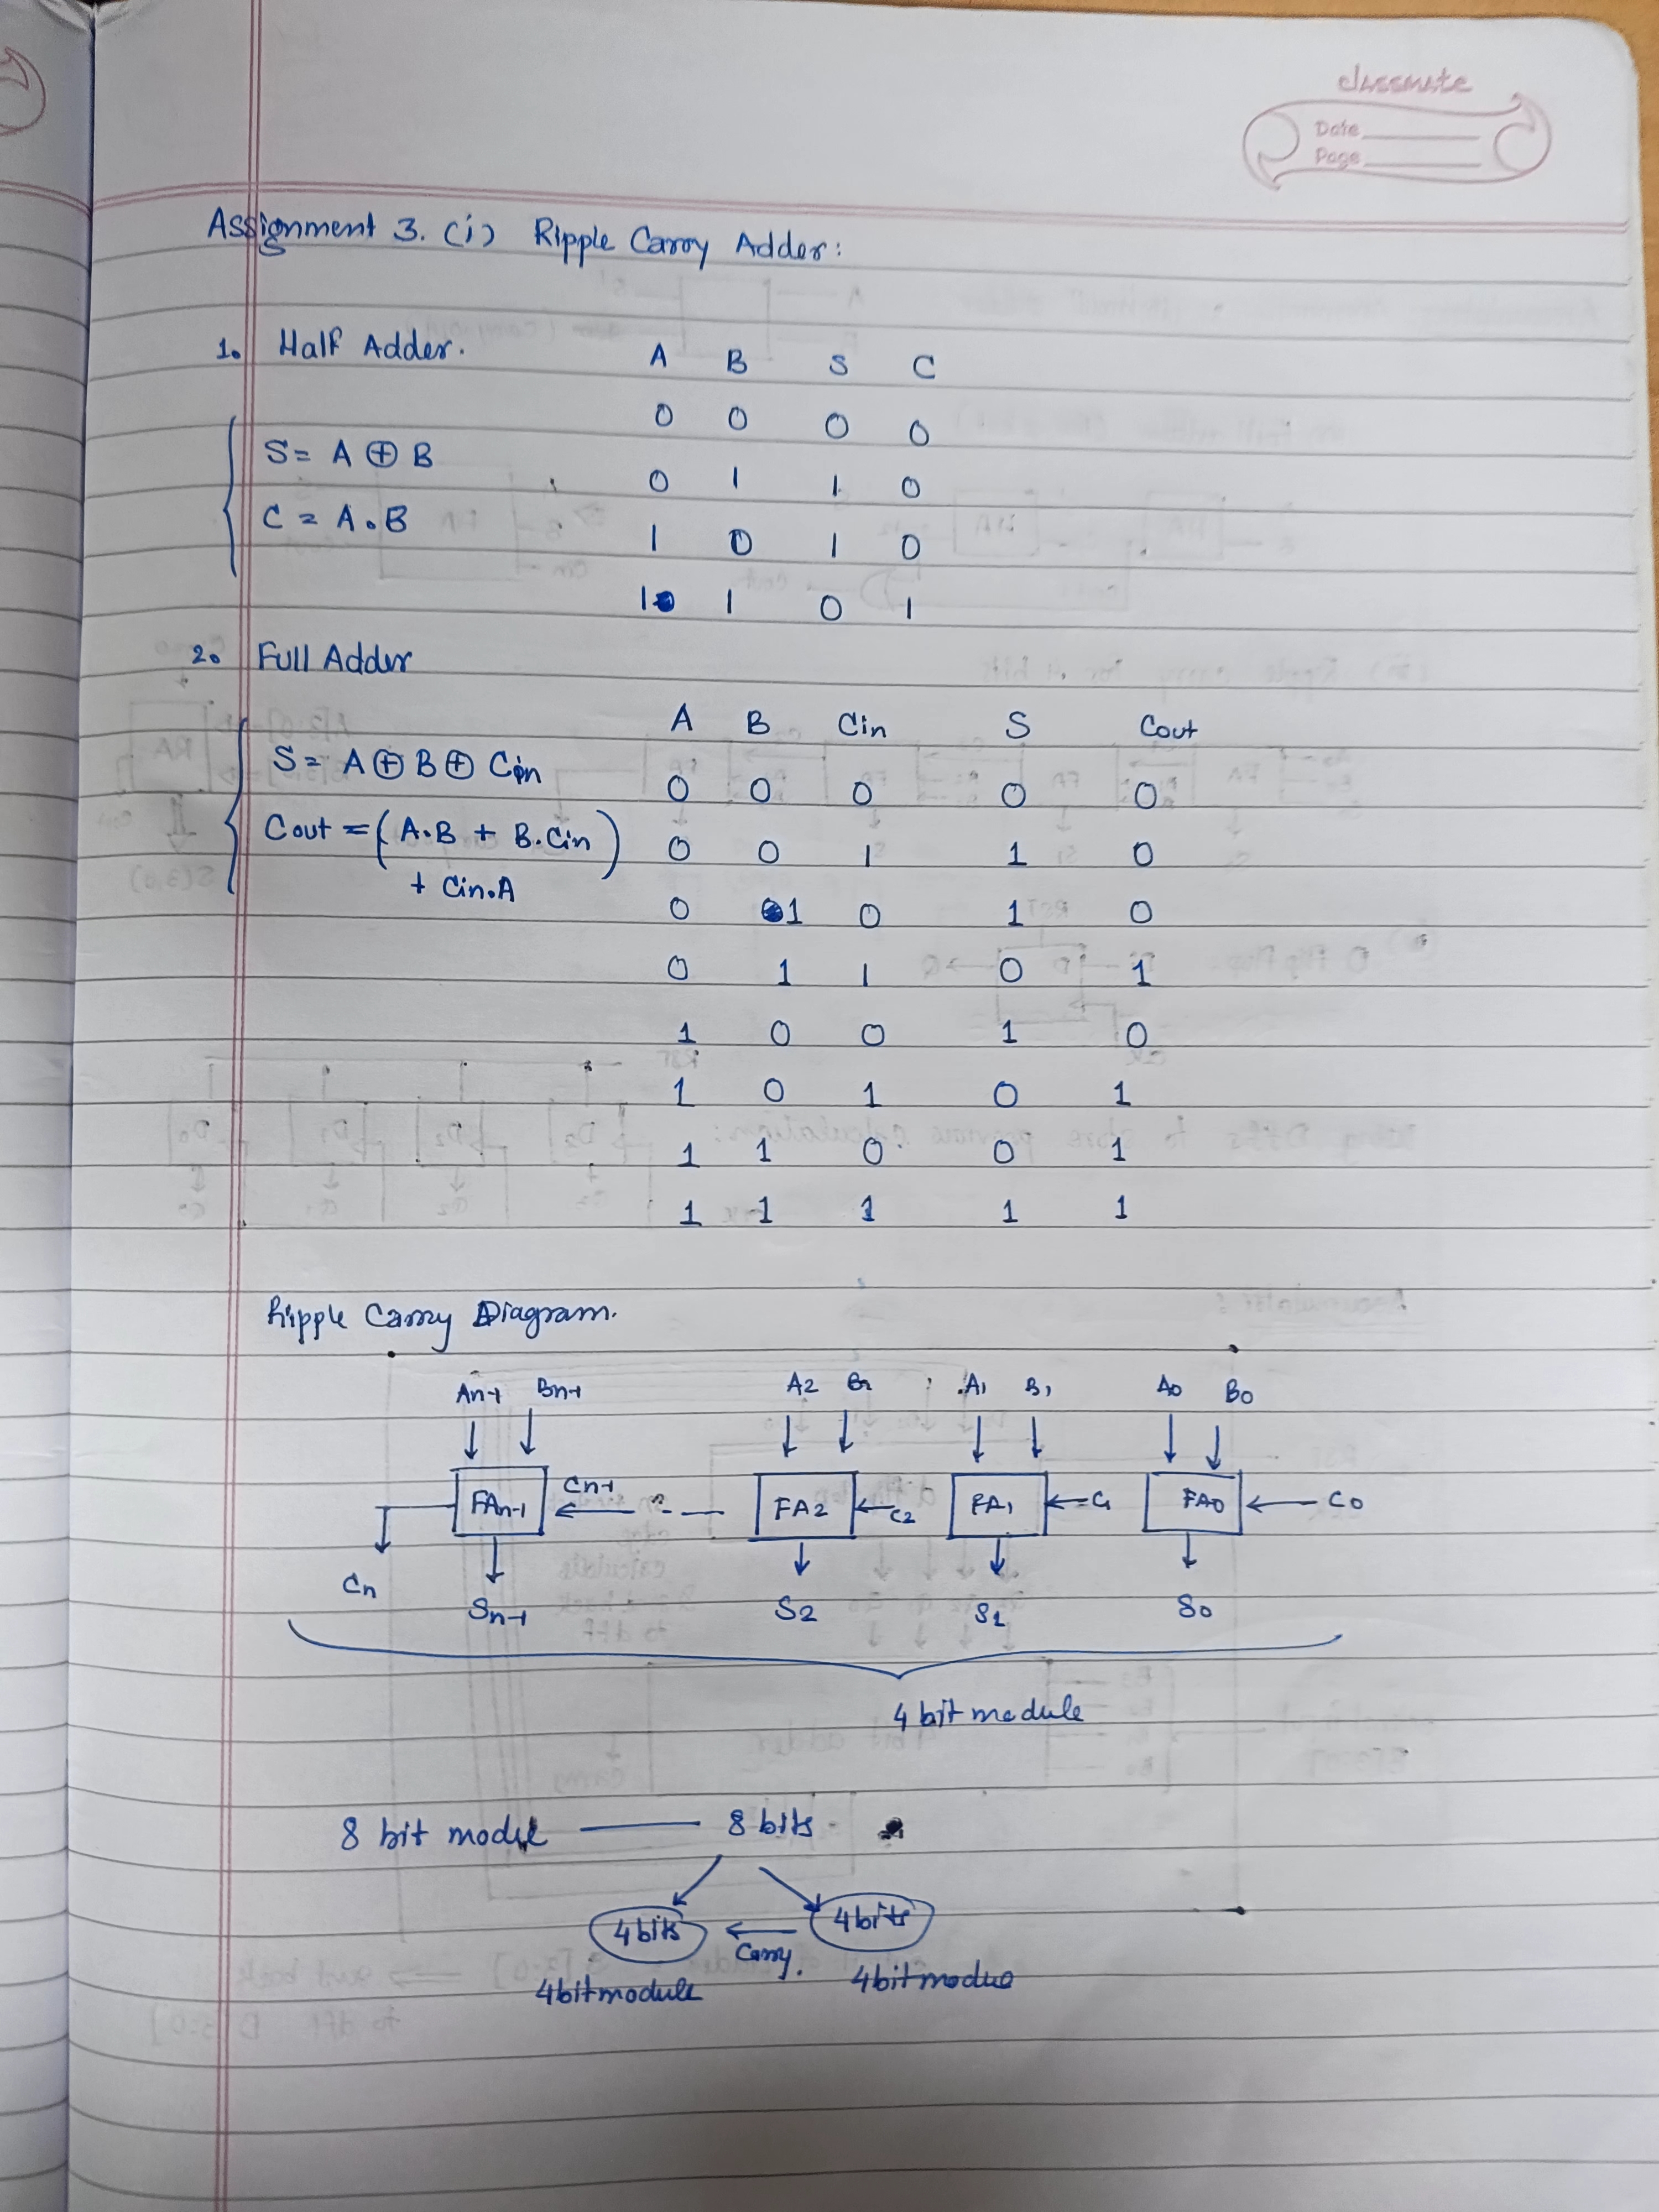 classmate
Date
Page
Assignment 3. (i) Ripple Carry Adder:
1. Half Adder.
A B S C
0 0 0 0
S = A ⊕ B
0 1 1 0
C = A . B
1 0 1 0
1 1 0 1
2. Full Adder
A B Cin S Cout
S = A ⊕ B ⊕ Cin
0 0 0 0 0
Cout = (A.B + B.Cin)
+ Cin.A
0 0 1 1 0
0 1 0 1 0
0 1 1 0 1
1 0 0 1 0
1 0 1 0 1
1 1 0 0 1
1 1 1 1 1
Ripple Carry Diagram.
An-1 Bn-1 A2 B2 A1 B1 A0 B0
FAn-1 Cn-1 FA2 C2 FA1 C1 FA0 C0
Cn
Sn-1 S2 S1 S0
4 bit module
8 bit modul 8 bits
4 bits Carry. 4 bits
4 bit module 4 bit modue